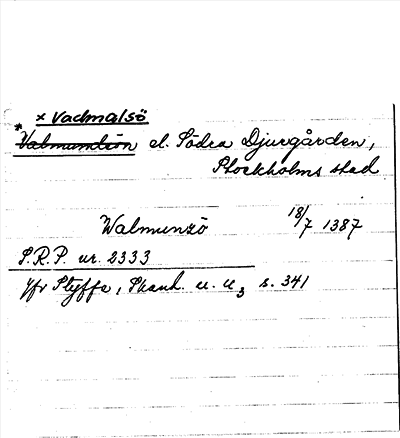 × Vadmalsö
* Valmundsön el. Södra Djurgården,
Stockholms stad
Walmunzö 18/7 1387
S.R.P. nr. 2333
Jfr Styffe, Skand. u. u₃ s. 341